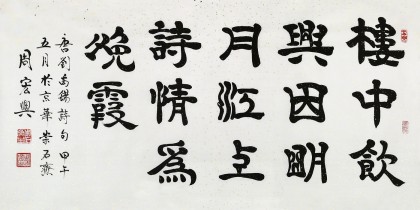 樓中飲
興因明
月江上
詩情爲
晚霞
唐劉禹錫詩句 甲午
五月於京華崇石齋
周宏興